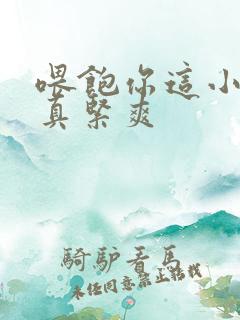 喂飽你這小
真緊爽
騎驢看馬
未任同意禁止轉載